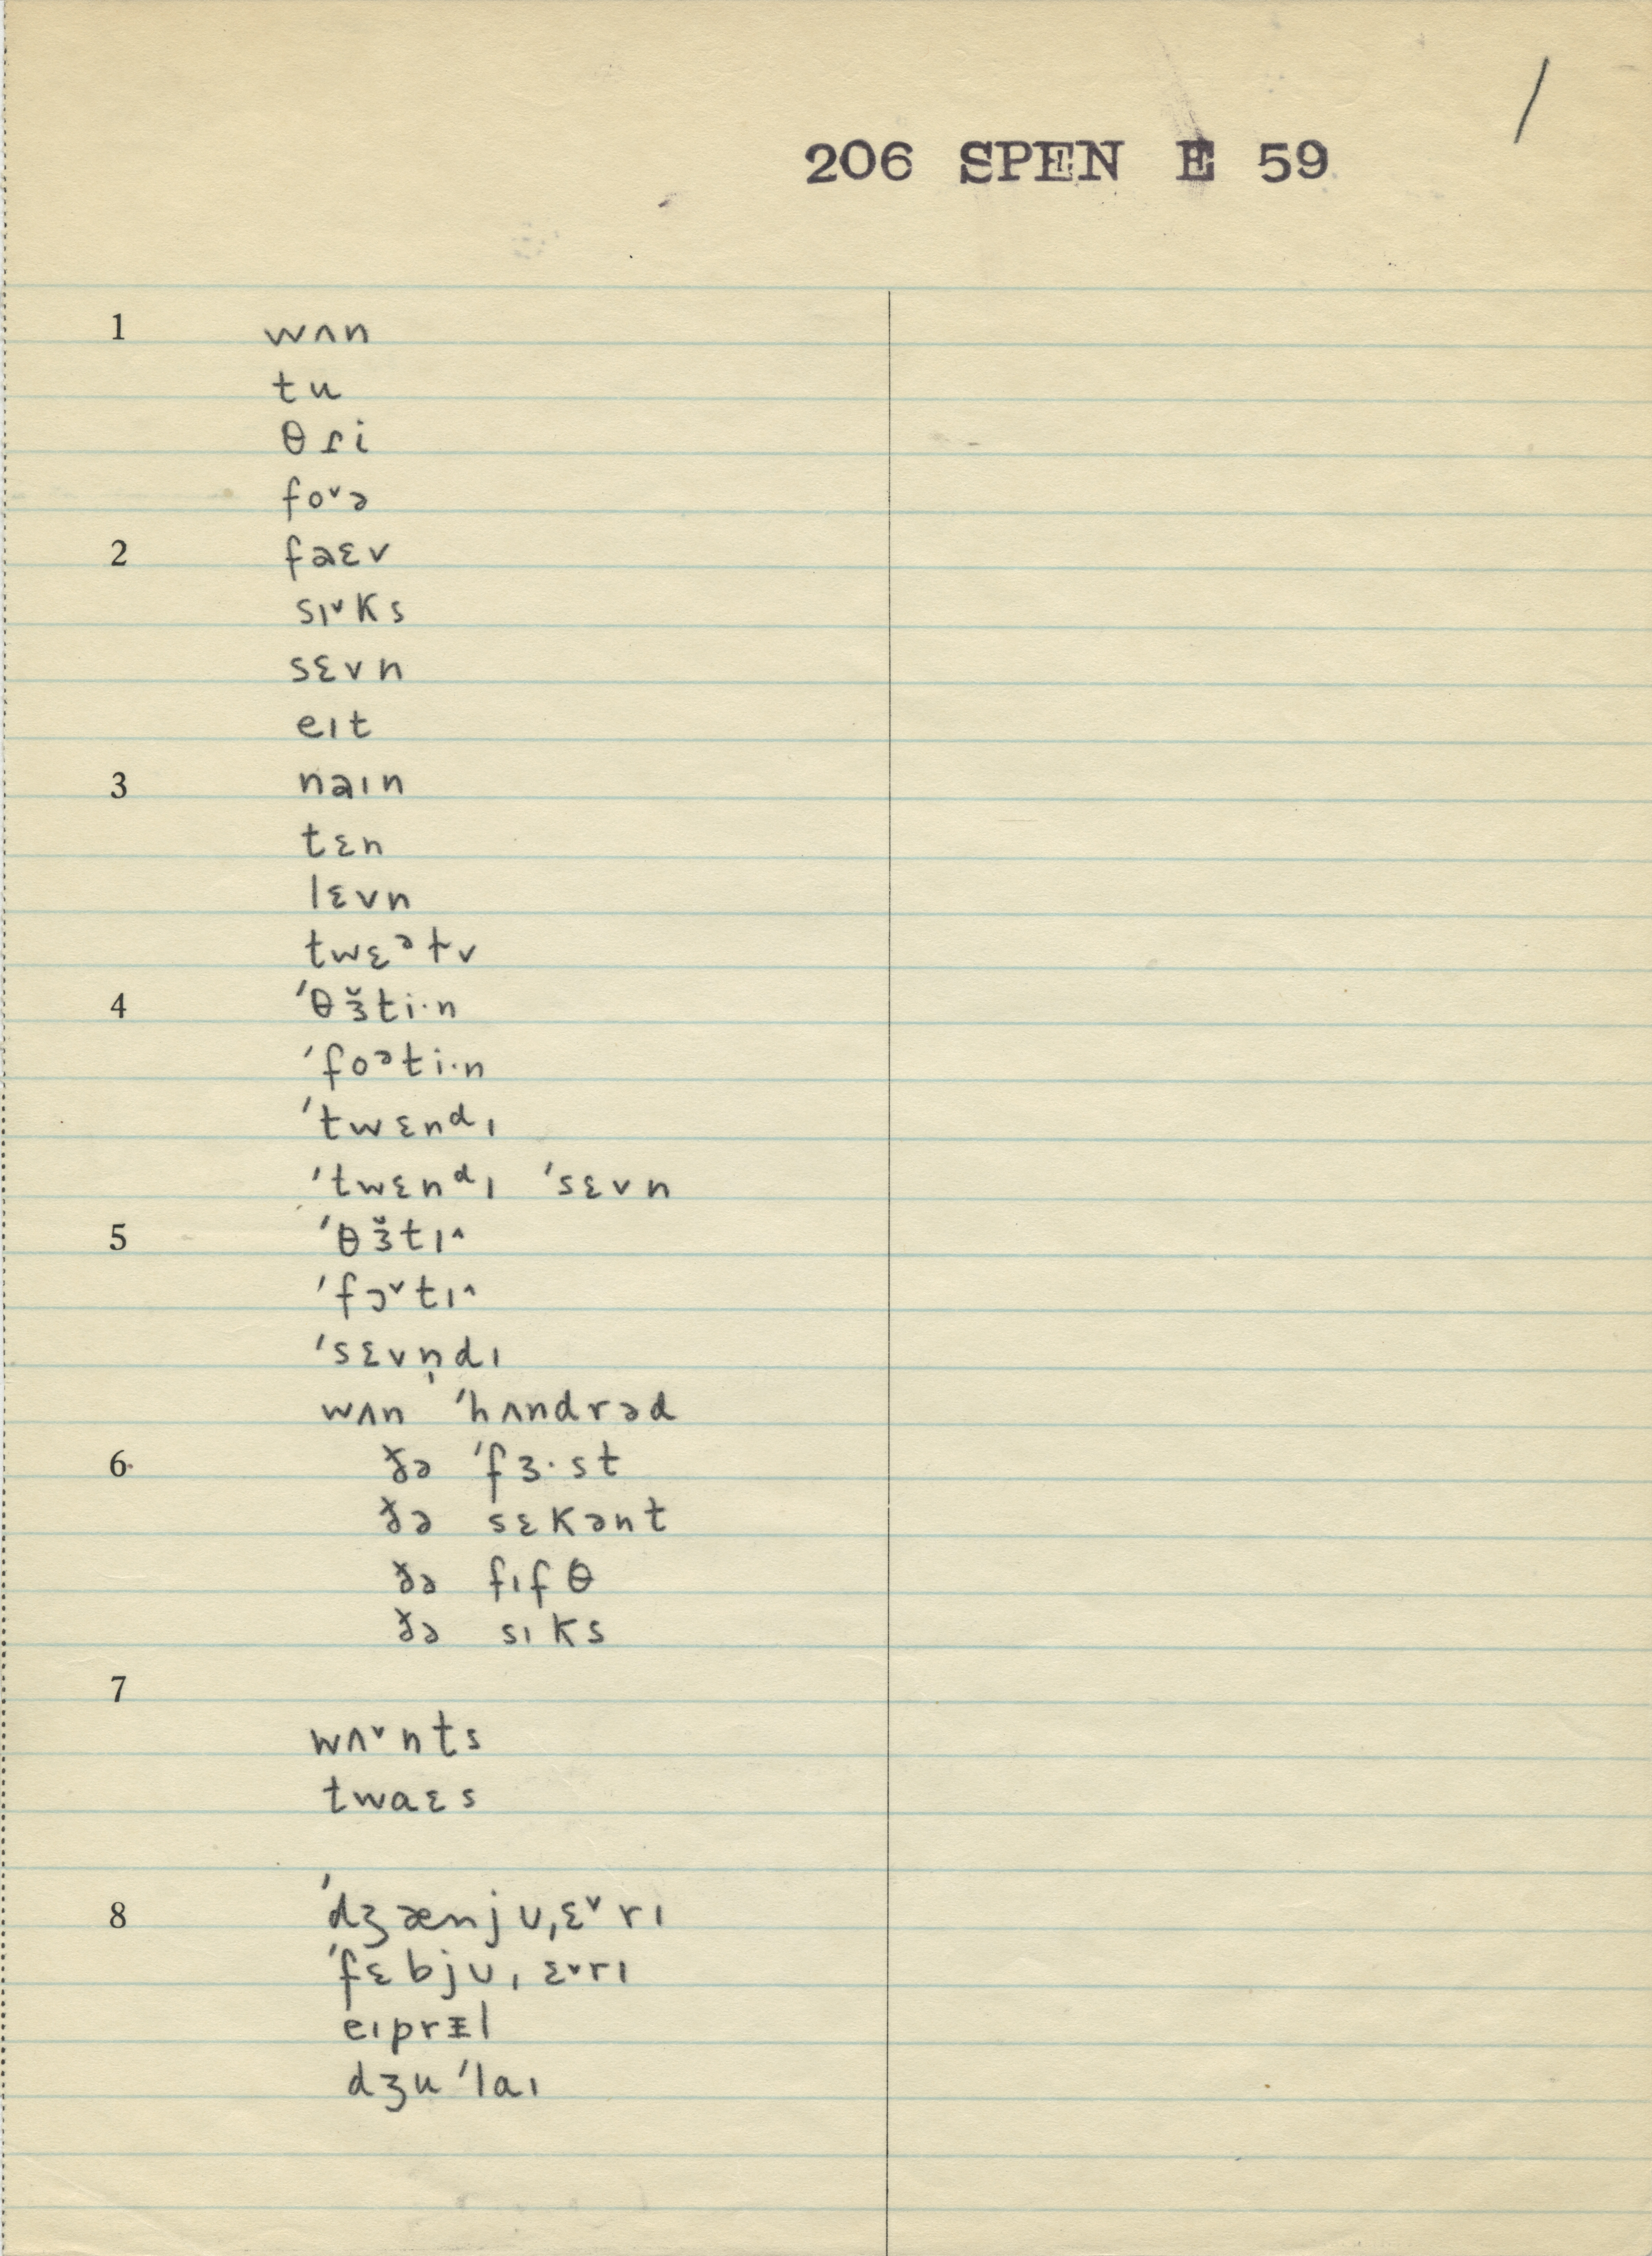 /
206 SPEN E 59
1 wʌn
tu
θɾi
foᵛə
2 fəɛv
sɪᵛks
sɛvn
eɪt
3 nəɪn
tɛn
lɛvn
twɛᵊtv
4 ˈθɜ̆ti·n
ˈfoᵊti·n
ˈtwɛnᵈɪ
ˈtwɛnᵈɪ ˈsɛvn
5 ˈθɜ̆tɪ^
ˈfɔᵛtɪ^
ˈsɛvn̩dɪ
wʌn ˈhʌndrəd
6 ðə ˈfɜ·st
ðə sɛkənt
ðə fɪfθ
ðə sɪks
7
wʌᵛnts
twaɛs
8 ˈdʒænjʊˌɛᵛrɪ
ˈfɛbjʊˌɛᵛrɪ
eɪprɪ̵l
dʒuˈlaɪ